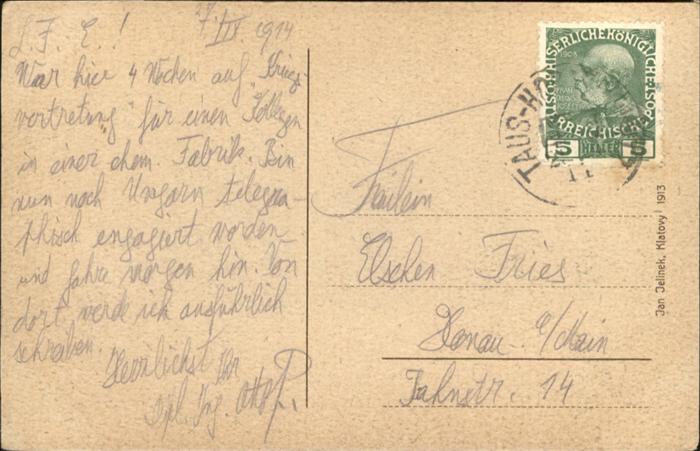 L. F. E.!
7. IX 1914
War hier 4 Wochen auf "Kriegs-
vertretung" für einen Kollegen
in einer chem. Fabrik. Bin
nun nach Ungarn telegra-
phisch engagiert worden
und fahre morgen hin. Von
dort werde ich ausführlich
schreiben.
Herzlichst Ihr
Dipl. Ing. Otto P.
Fräulein
Elschen Fries
Hanau a/Main
Jahnstr. 14
KAISERLICHE KÖNIGLICHE ÖSTERREICHISCHE POST
1908
5 HELLER 5
TAUS
Jan Jelínek, Klatovy 1913